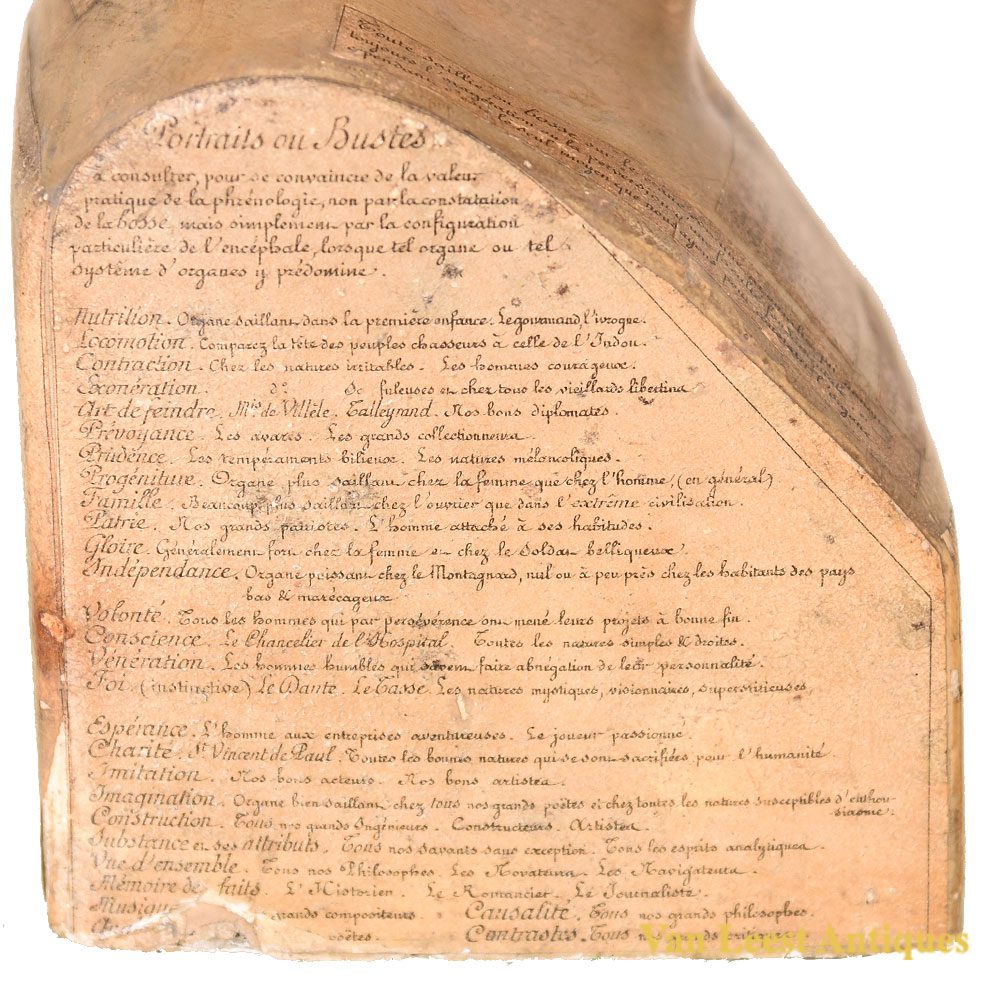 Toute saillie ou bosse
toujours l'exagération
cependant
moyen que nous
Portraits ou Bustes
à consulter, pour se convaincre de la valeur
pratique de la phrénologie, non par la constatation
de la bosse, mais simplement par la configuration
particulière de l'encéphale, lorsque tel organe ou tel
système d'organes y prédomine.
Nutrition. Organe saillant dans la première enfance. Le gourmand, l'ivrogne.
Locomotion. Comparez la tête des peuples chasseurs à celle de l'Indou.
Contraction. Chez les natures irritables. Les hommes courageux.
Exonération. d° d° fileuses et chez tous les vieillards libertins
Art de feindre. Mis de Villèle. Talleyrand. Nos bons diplomates.
Prévoyance. Les avares. Les grands collectionneurs.
Prudence. Les tempéraments bilieux. Les natures mélancoliques.
Progéniture. Organe plus saillant chez la femme que chez l'homme, (en général)
Famille. Beaucoup plus saillant chez l'ouvrier que dans l'extrême civilisation.
Patrie. Nos grands patriotes. L'homme attaché à ses habitudes.
Gloire. Généralement fort chez la femme et chez le Soldat belliqueux.
Indépendance. Organe puissant chez le Montagnard, nul ou à peu près chez les habitants des pays
bas & marécageux
Volonté. Tous les hommes qui par persévérance ont mené leurs projets à bonne fin.
Conscience. Le Chancelier de l'Hospital. Toutes les natures simples & droites.
Vénération. Les hommes humbles qui savent faire abnégation de leur personnalité.
Foi (instinctive) Le Dante. Le Tasse. Les natures mystiques, visionnaires, superstitieuses,
Espérance. L'homme aux entreprises aventureuses. Le joueur passionné.
Charité. St Vincent de Paul. Toutes les bonnes natures qui se sont sacrifiées pour l'humanité
Imitation. Nos bons acteurs. Nos bons artistes.
Imagination. Organe bien saillant chez tous nos grands poëtes et chez toutes les natures susceptibles d'enthou-
siasme.
Construction. Tous nos grands Ingénieurs. Constructeurs. Artistes.
Substance et ses attributs. Tous nos savants sans exception. Tous les esprits analytiques.
Vue d'ensemble. Tous nos Philosophes. Les Novateurs. Les Navigateurs.
Mémoire de faits. L'Historien. Le Romancier. Le Journaliste.
Musique grands compositeurs. Causalité. Tous nos grands philosophes.
poëtes. Contrastes. Tous nos grands critiques
Van Leest Antiques